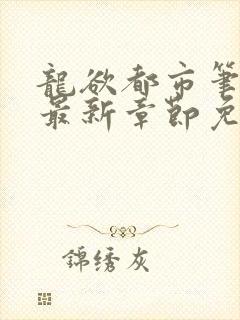 龍欲都市筆
最新章節免
錦绣灰